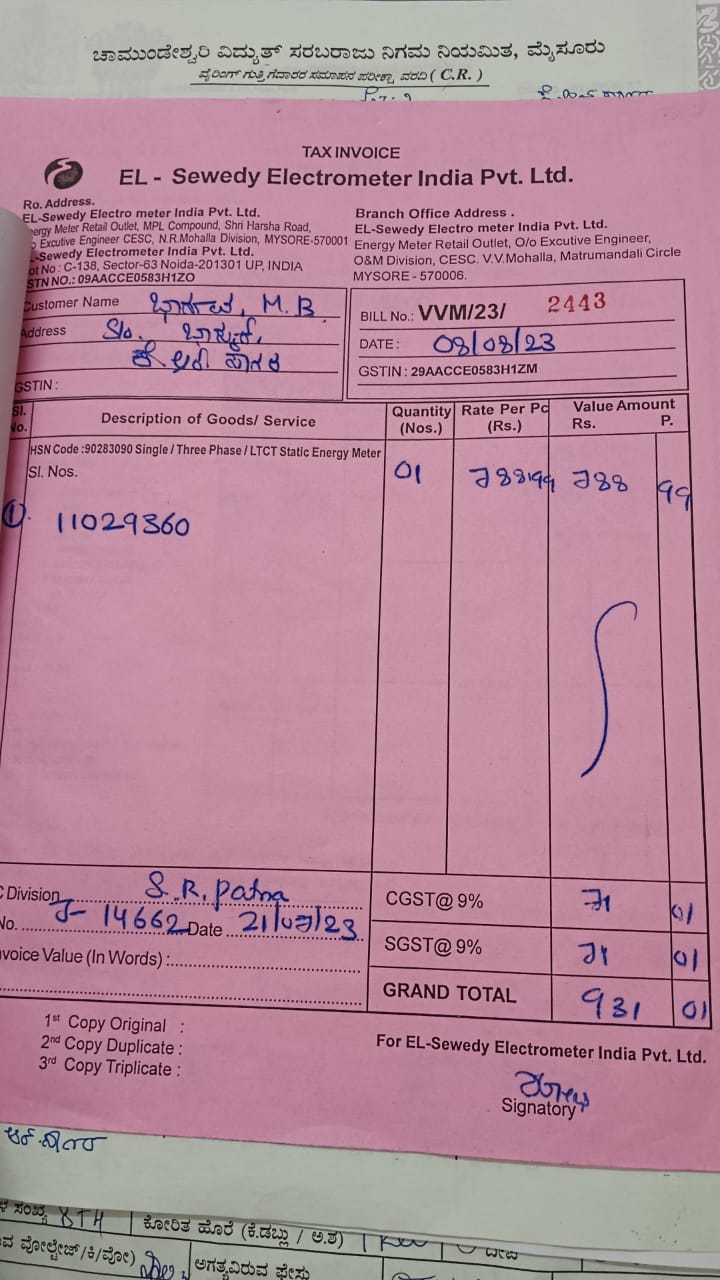 ಚಾಮುಂಡೇಶ್ವರಿ ವಿದ್ಯುತ್ ಸರಬರಾಜು ನಿಗಮ ನಿಯಮಿತ, ಮೈಸೂರು
ವೈರಿಂಗ್ ಗುತ್ತಿಗೆದಾರರ ಸಮಾಪನ ಪರೀಕ್ಷಾ ವರದಿ ( C.R. )
TAX INVOICE
EL - Sewedy Electrometer India Pvt. Ltd.
Ro. Address.
EL-Sewedy Electro meter India Pvt. Ltd.
ergy Meter Retail Outlet, MPL Compound, Shri Harsha Road,
Excutive Engineer CESC, N.R.Mohalla Division, MYSORE-570001
-Sewedy Electrometer Pvt. Ltd.
ot No : C-138, Sector-63 Noida-201301 UP, INDIA
STN NO.: 09AACCE0583H1ZO
Branch Office Address .
EL-Sewedy Electro meter India Pvt. Ltd.
Energy Meter Retail Outlet, O/o Excutive Engineer,
O&M Division, CESC. V.V.Mohalla, Matrumandali Circle
MYSORE - 570006.
Customer Name M.B
Address S/o.
GSTIN :
BILL No.: VVM/23/ 2443
DATE : 08/08/23
GSTIN : 29AACCE0583H1ZM
Sl. No. Description of Goods/ Service Quantity (Nos.) Rate Per Pc (Rs.) Value Amount Rs. P.
HSN Code :90283090 Single / Three Phase / LTCT Static Energy Meter
Sl. Nos. 01 788.99 788 99
1. 11029360
C Division S.R. Patna CGST@ 9% 71 01
No. J- 14662 Date 21/07/23 SGST@ 9% 71 01
nvoice Value (In Words) : GRAND TOTAL 931 01
1st Copy Original :
2nd Copy Duplicate :
3rd Copy Triplicate :
For EL-Sewedy Electrometer India Pvt. Ltd.
Signatory
ಸಂಖ್ಯೆ ಕೋರಿತ ಹೊರೆ (ಕೆ.ಡಬ್ಲು / ಅ.ಶ)
ವ ವೋಲ್ಟೇಜ್/ಕಿ/ವೋ) ಅಗತ್ಯವಿರುವ ಫೇಸು